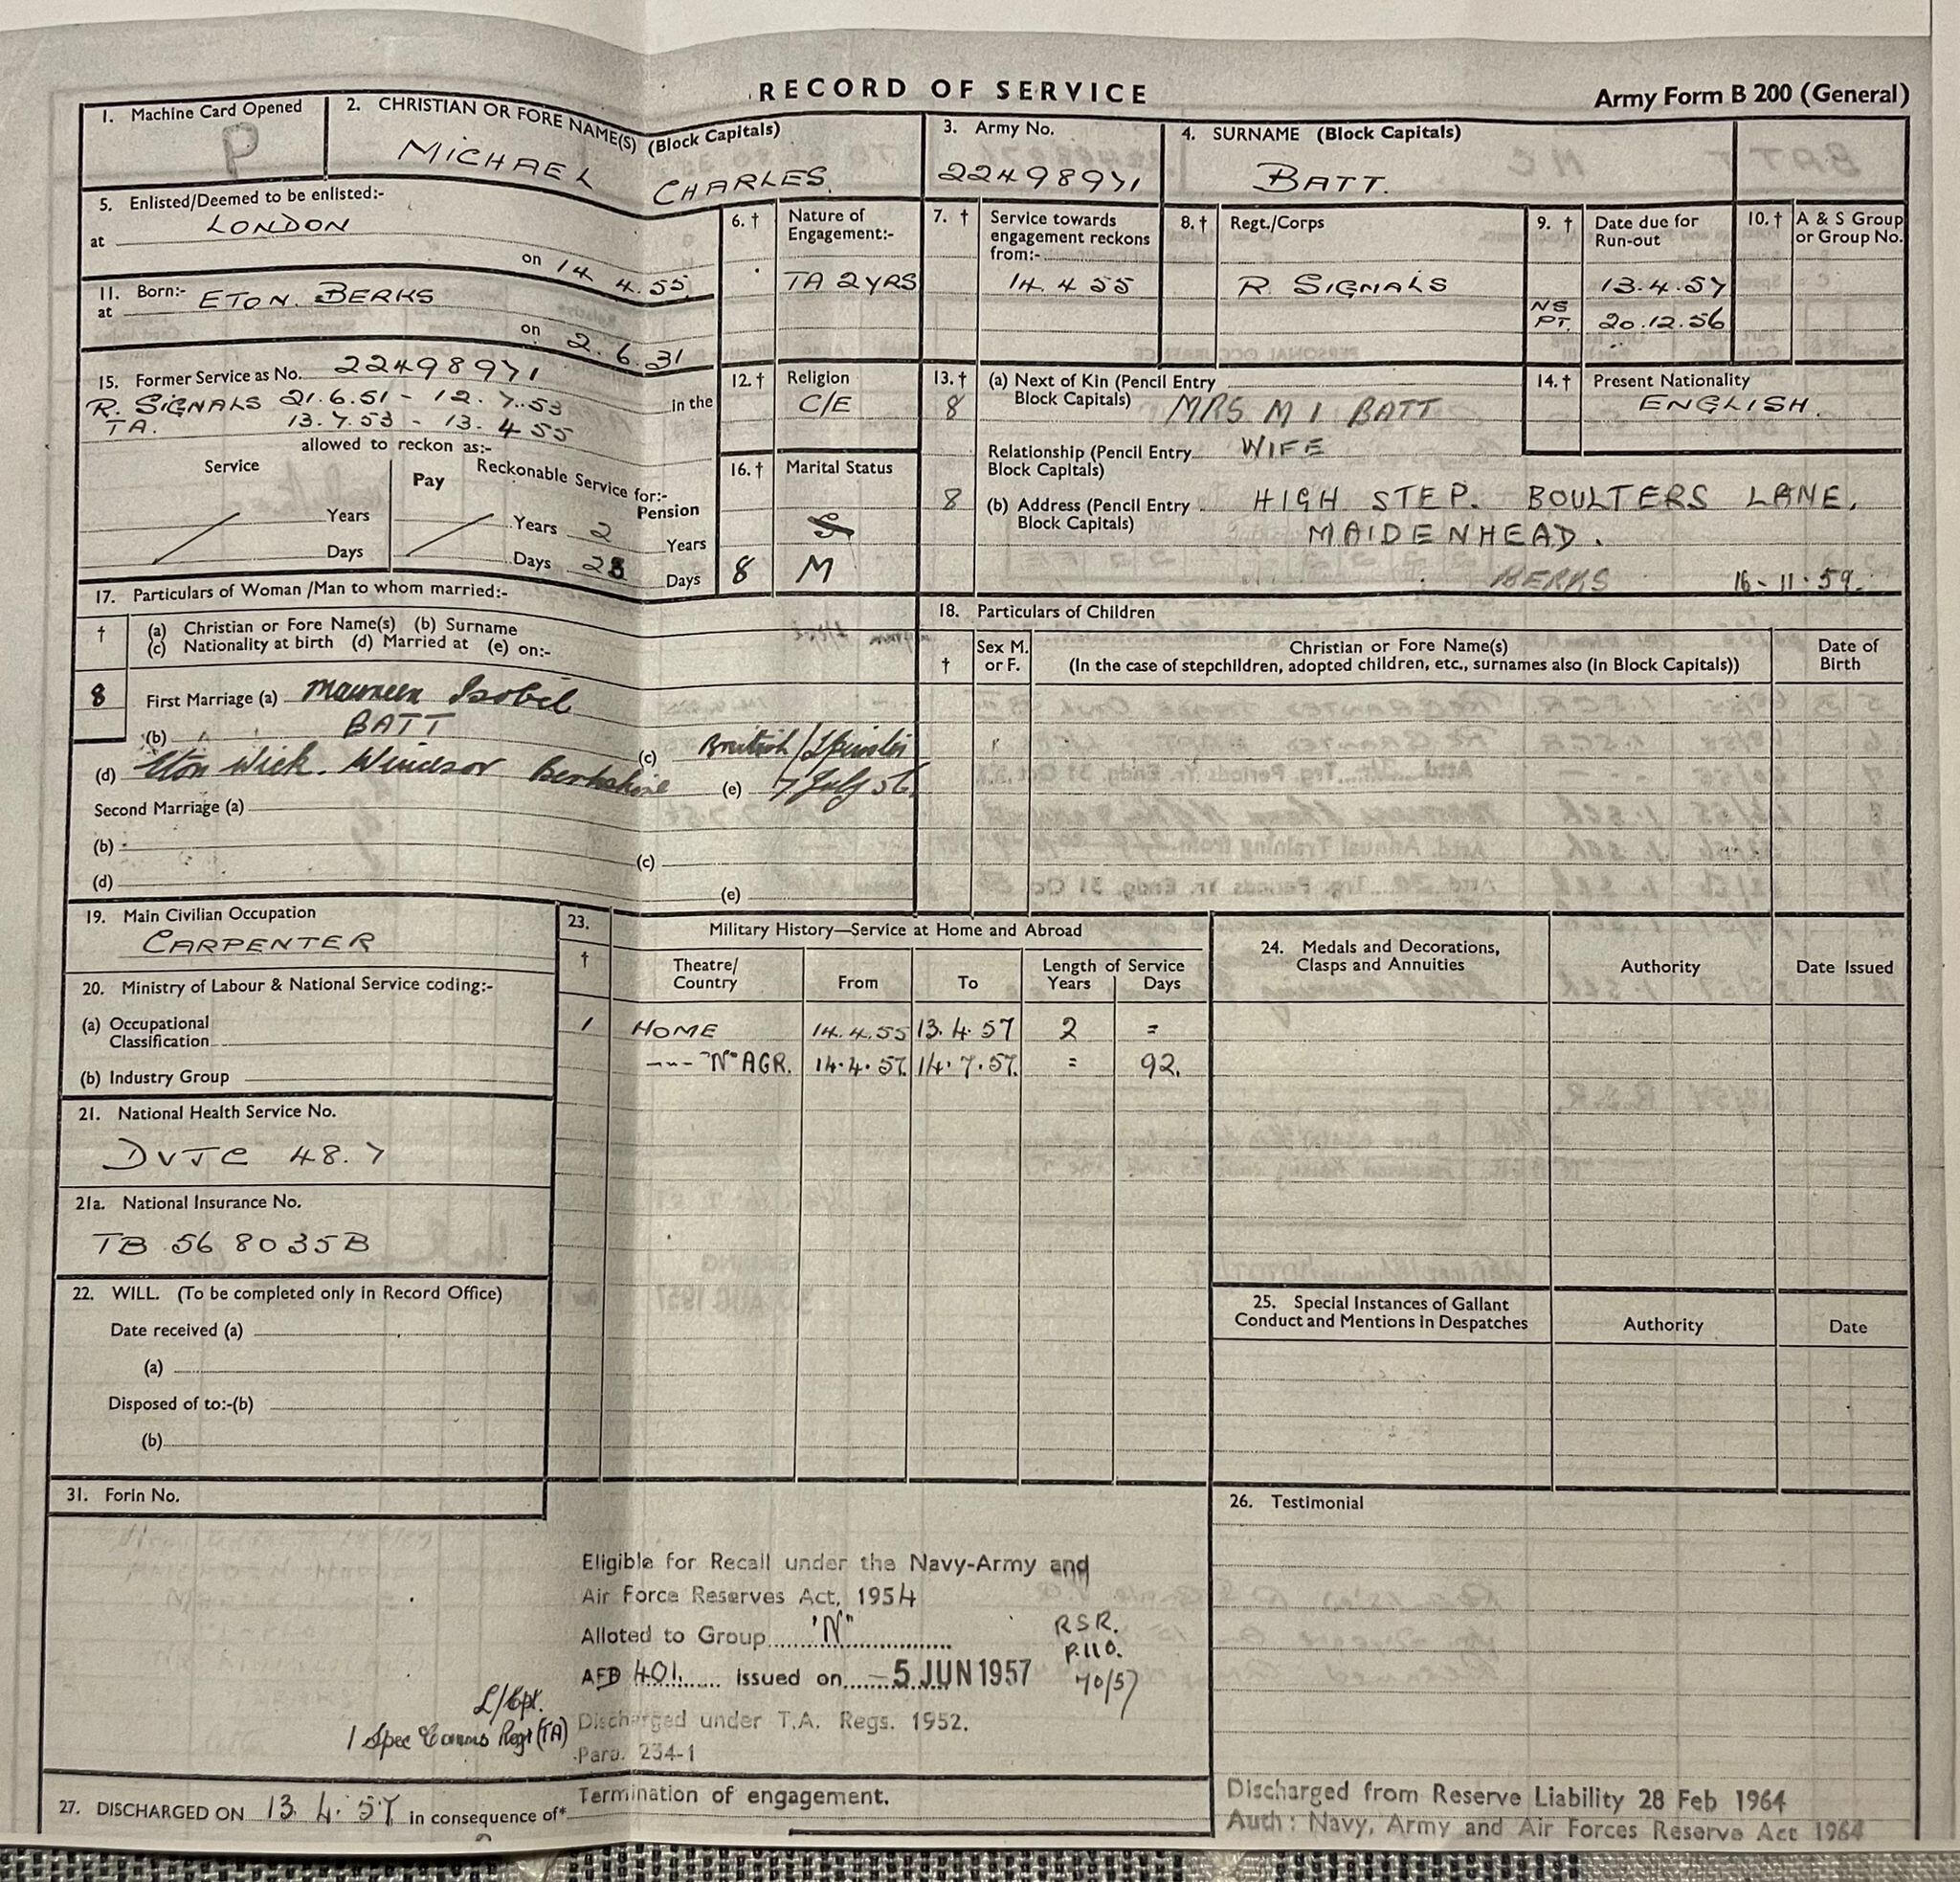 RECORD OF SERVICE
Army Form B 200 (General)
1. Machine Card Opened
P
2. CHRISTIAN OR FORE NAME(S) (Block Capitals)
MICHAEL CHARLES.
3. Army No.
22498971
4. SURNAME (Block Capitals)
BATT.
5. Enlisted/Deemed to be enlisted:-
at LONDON
on 14.4.55
6. † Nature of Engagement:-
TA 2 YRS
7. † Service towards engagement reckons from:-
14.4.55
8. † Regt./Corps
R. SIGNALS
9. † Date due for Run-out
13.4.57
NS PT. 20.12.56
10. † A & S Group or Group No.
11. Born:-
at ETON. BERKS
on 2.6.31
15. Former Service as No. 22498971
R. SIGNALS 21.6.51 - 12.7.53 in the
TA. 13.7.53 - 13.4.55
allowed to reckon as:-
Service
Pay
Reckonable Service for:-
Pension
Years
Years 2 Years
Days
Days 23 Days
12. † Religion
C/E
13. † (a) Next of Kin (Pencil Entry Block Capitals)
8 MRS M I BATT
Relationship (Pencil Entry Block Capitals) WIFE
8 (b) Address (Pencil Entry Block Capitals) HIGH STEP. BOULTERS LANE,
MAIDENHEAD.
BERKS 16-11-59.
14. † Present Nationality
ENGLISH.
16. † Marital Status
S
8 M
17. Particulars of Woman/Man to whom married:-
† (a) Christian or Fore Name(s) (b) Surname
(c) Nationality at birth (d) Married at (e) on:-
8 First Marriage (a) Maureen Isobel
(b) BATT
(c) British/Spinster
(d) Eton Wick. Windsor Berkshire
(e) 7 July 56.
Second Marriage (a)
(b)
(c)
(d)
(e)
18. Particulars of Children
† Sex M. or F.
Christian or Fore Name(s)
(In the case of stepchildren, adopted children, etc., surnames also (in Block Capitals))
Date of Birth
19. Main Civilian Occupation
CARPENTER
20. Ministry of Labour & National Service coding:-
(a) Occupational Classification
(b) Industry Group
21. National Health Service No.
DVJC 48.7
21a. National Insurance No.
TB 56 80 35 B
22. WILL. (To be completed only in Record Office)
Date received (a)
(a)
Disposed of to:-(b)
(b)
23. Military History—Service at Home and Abroad
† Theatre/Country From To Length of Service Years Days
1 HOME 14.4.55 13.4.57 2 =
--- "N" AGR. 14.4.57. 14.7.57. = 92.
24. Medals and Decorations, Clasps and Annuities
Authority
Date Issued
25. Special Instances of Gallant Conduct and Mentions in Despatches
Authority
Date
31. Form No.
26. Testimonial
Eligible for Recall under the Navy-Army and
Air Force Reserves Act, 1954
Alloted to Group "N"
AFD 401. issued on -5 JUN 1957
RSR.
P.110.
70/57
L/Cpl.
1 Spec Comms Regt (TA)
Discharged under T.A. Regs. 1952.
Para. 234-1
27. DISCHARGED ON 13.4.57 in consequence of* Termination of engagement.
Discharged from Reserve Liability 28 Feb 1964
Auth: Navy, Army and Air Forces Reserve Act 1964